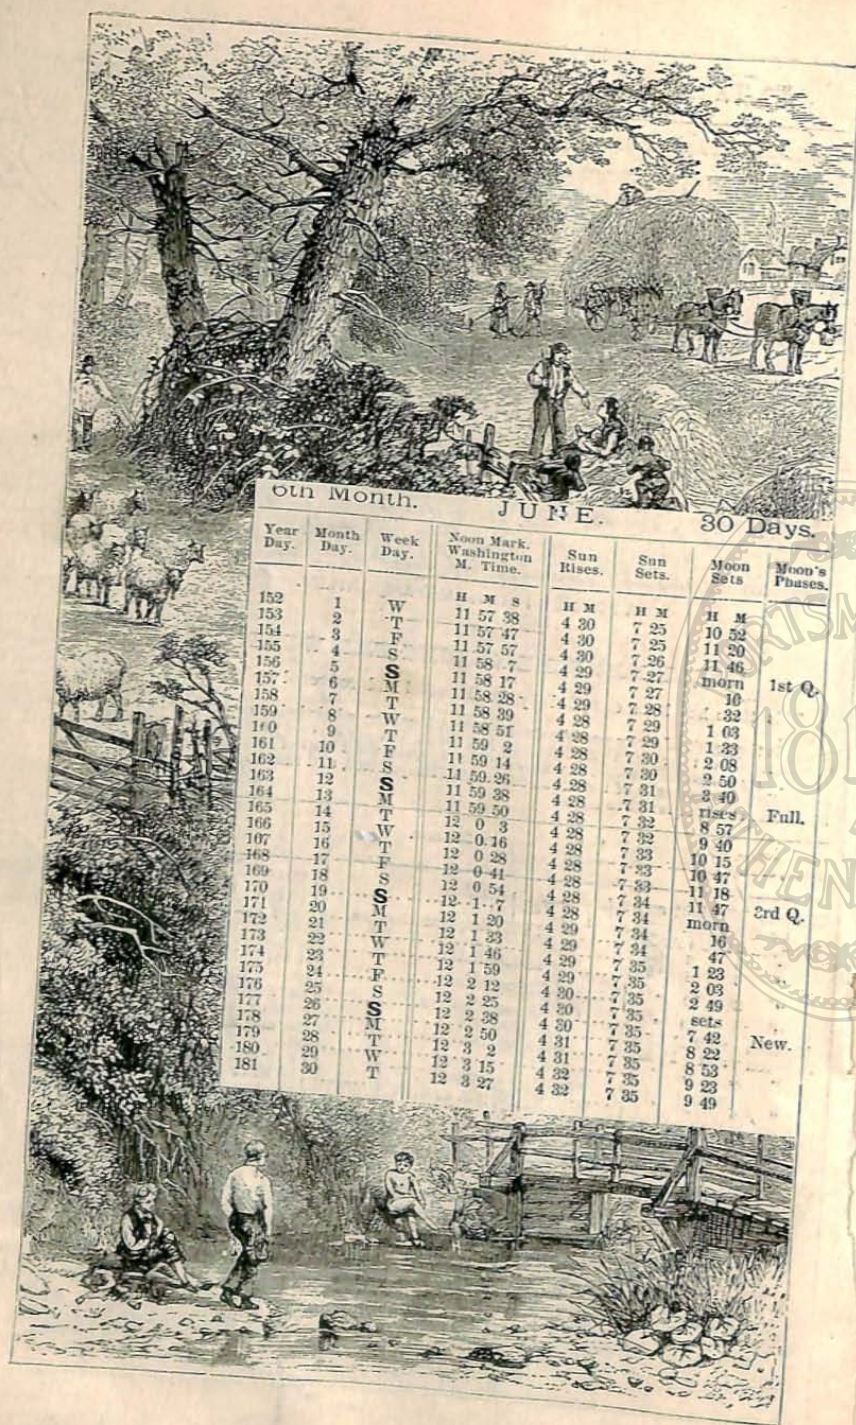 6th Month. JUNE. 30 Days.
Year Day. Month Day. Week Day. Noon Mark. Washington M. Time. Sun Rises. Sun Sets. Moon Sets Moon's Phases.
H M S H M H M H M
152 1 W 11 57 38 4 30 7 25 10 52
153 2 T 11 57 47 4 30 7 25 11 20
154 3 F 11 57 57 4 30 7 26 11 46
155 4 S 11 58 7 4 29 7 27 morn 1st Q.
156 5 S 11 58 17 4 29 7 27 10
157 6 M 11 58 28 4 29 7 28 32
158 7 T 11 58 39 4 28 7 29 1 03
159 8 W 11 58 51 4 28 7 29 1 33
160 9 T 11 59 2 4 28 7 30 2 08
161 10 F 11 59 14 4 28 7 30 2 50
162 11 S 11 59 26 4 28 7 31 3 40
163 12 S 11 59 38 4 28 7 31 rises Full.
164 13 M 11 59 50 4 28 7 32 8 57
165 14 T 12 0 3 4 28 7 32 9 40
166 15 W 12 0 16 4 28 7 33 10 15
167 16 T 12 0 28 4 28 7 33 10 47
168 17 F 12 0 41 4 28 7 33 11 18
169 18 S 12 0 54 4 28 7 34 11 47 3rd Q.
170 19 S 12 1 7 4 28 7 34 morn
171 20 M 12 1 20 4 29 7 34 16
172 21 T 12 1 33 4 29 7 34 47
173 22 W 12 1 46 4 29 7 35 1 23
174 23 T 12 1 59 4 29 7 35 2 03
175 24 F 12 2 12 4 30 7 35 2 49
176 25 S 12 2 25 4 30 7 35 sets
177 26 S 12 2 38 4 30 7 35 7 42 New.
178 27 M 12 2 50 4 31 7 35 8 22
179 28 T 12 3 2 4 31 7 35 8 53
180 29 W 12 3 15 4 32 7 35 9 23
181 30 T 12 3 27 4 32 7 35 9 49